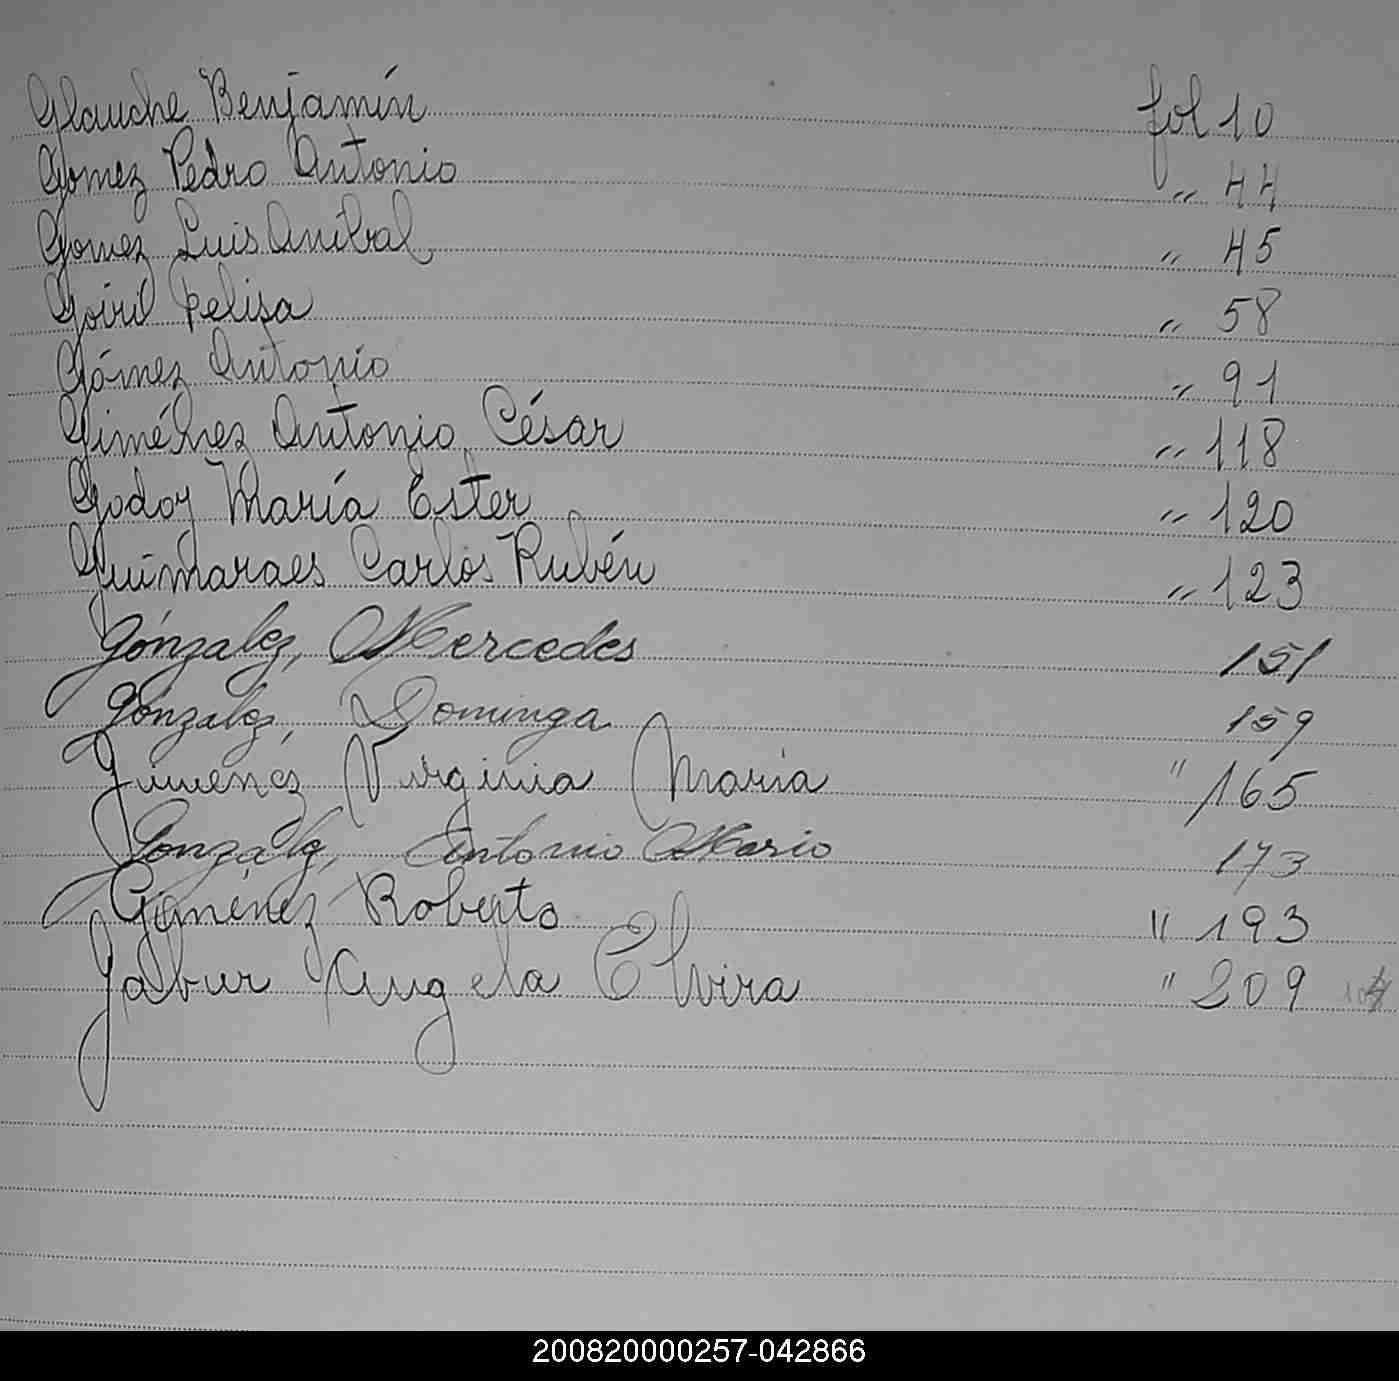 Glauche Benjamín fol 10
Gomez Pedro Antonio " 44
Gomez Luis Anibal " 45
Goiri Felisa " 58
Gómez Antonio " 91
Giménez Antonio César " 118
Godoy María Ester " 120
Guimaraes Carlos Rubén " 123
González, Mercedes 151
González, Dominga 159
Jimenez Virginia María " 165
González, Antonio Mario 173
Giménez Roberto " 193
Jabur Angela Elvira " 209
200820000257-042866